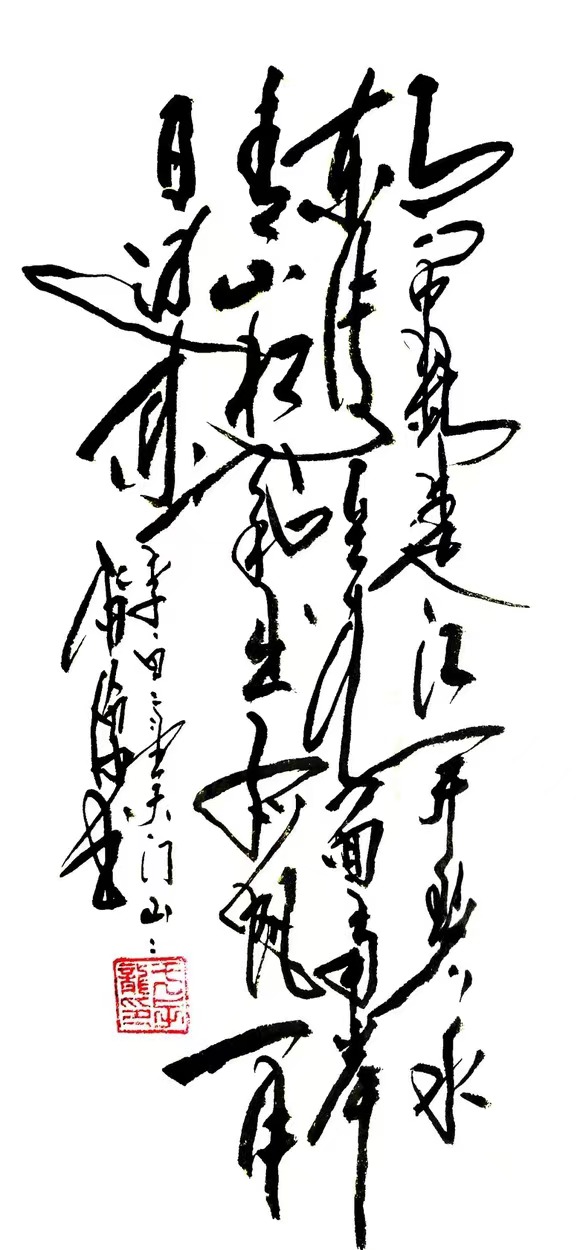 天门中断楚江开碧水
东流至此回两岸
青山相对出孤帆一片
日边来
李白望天门山
书